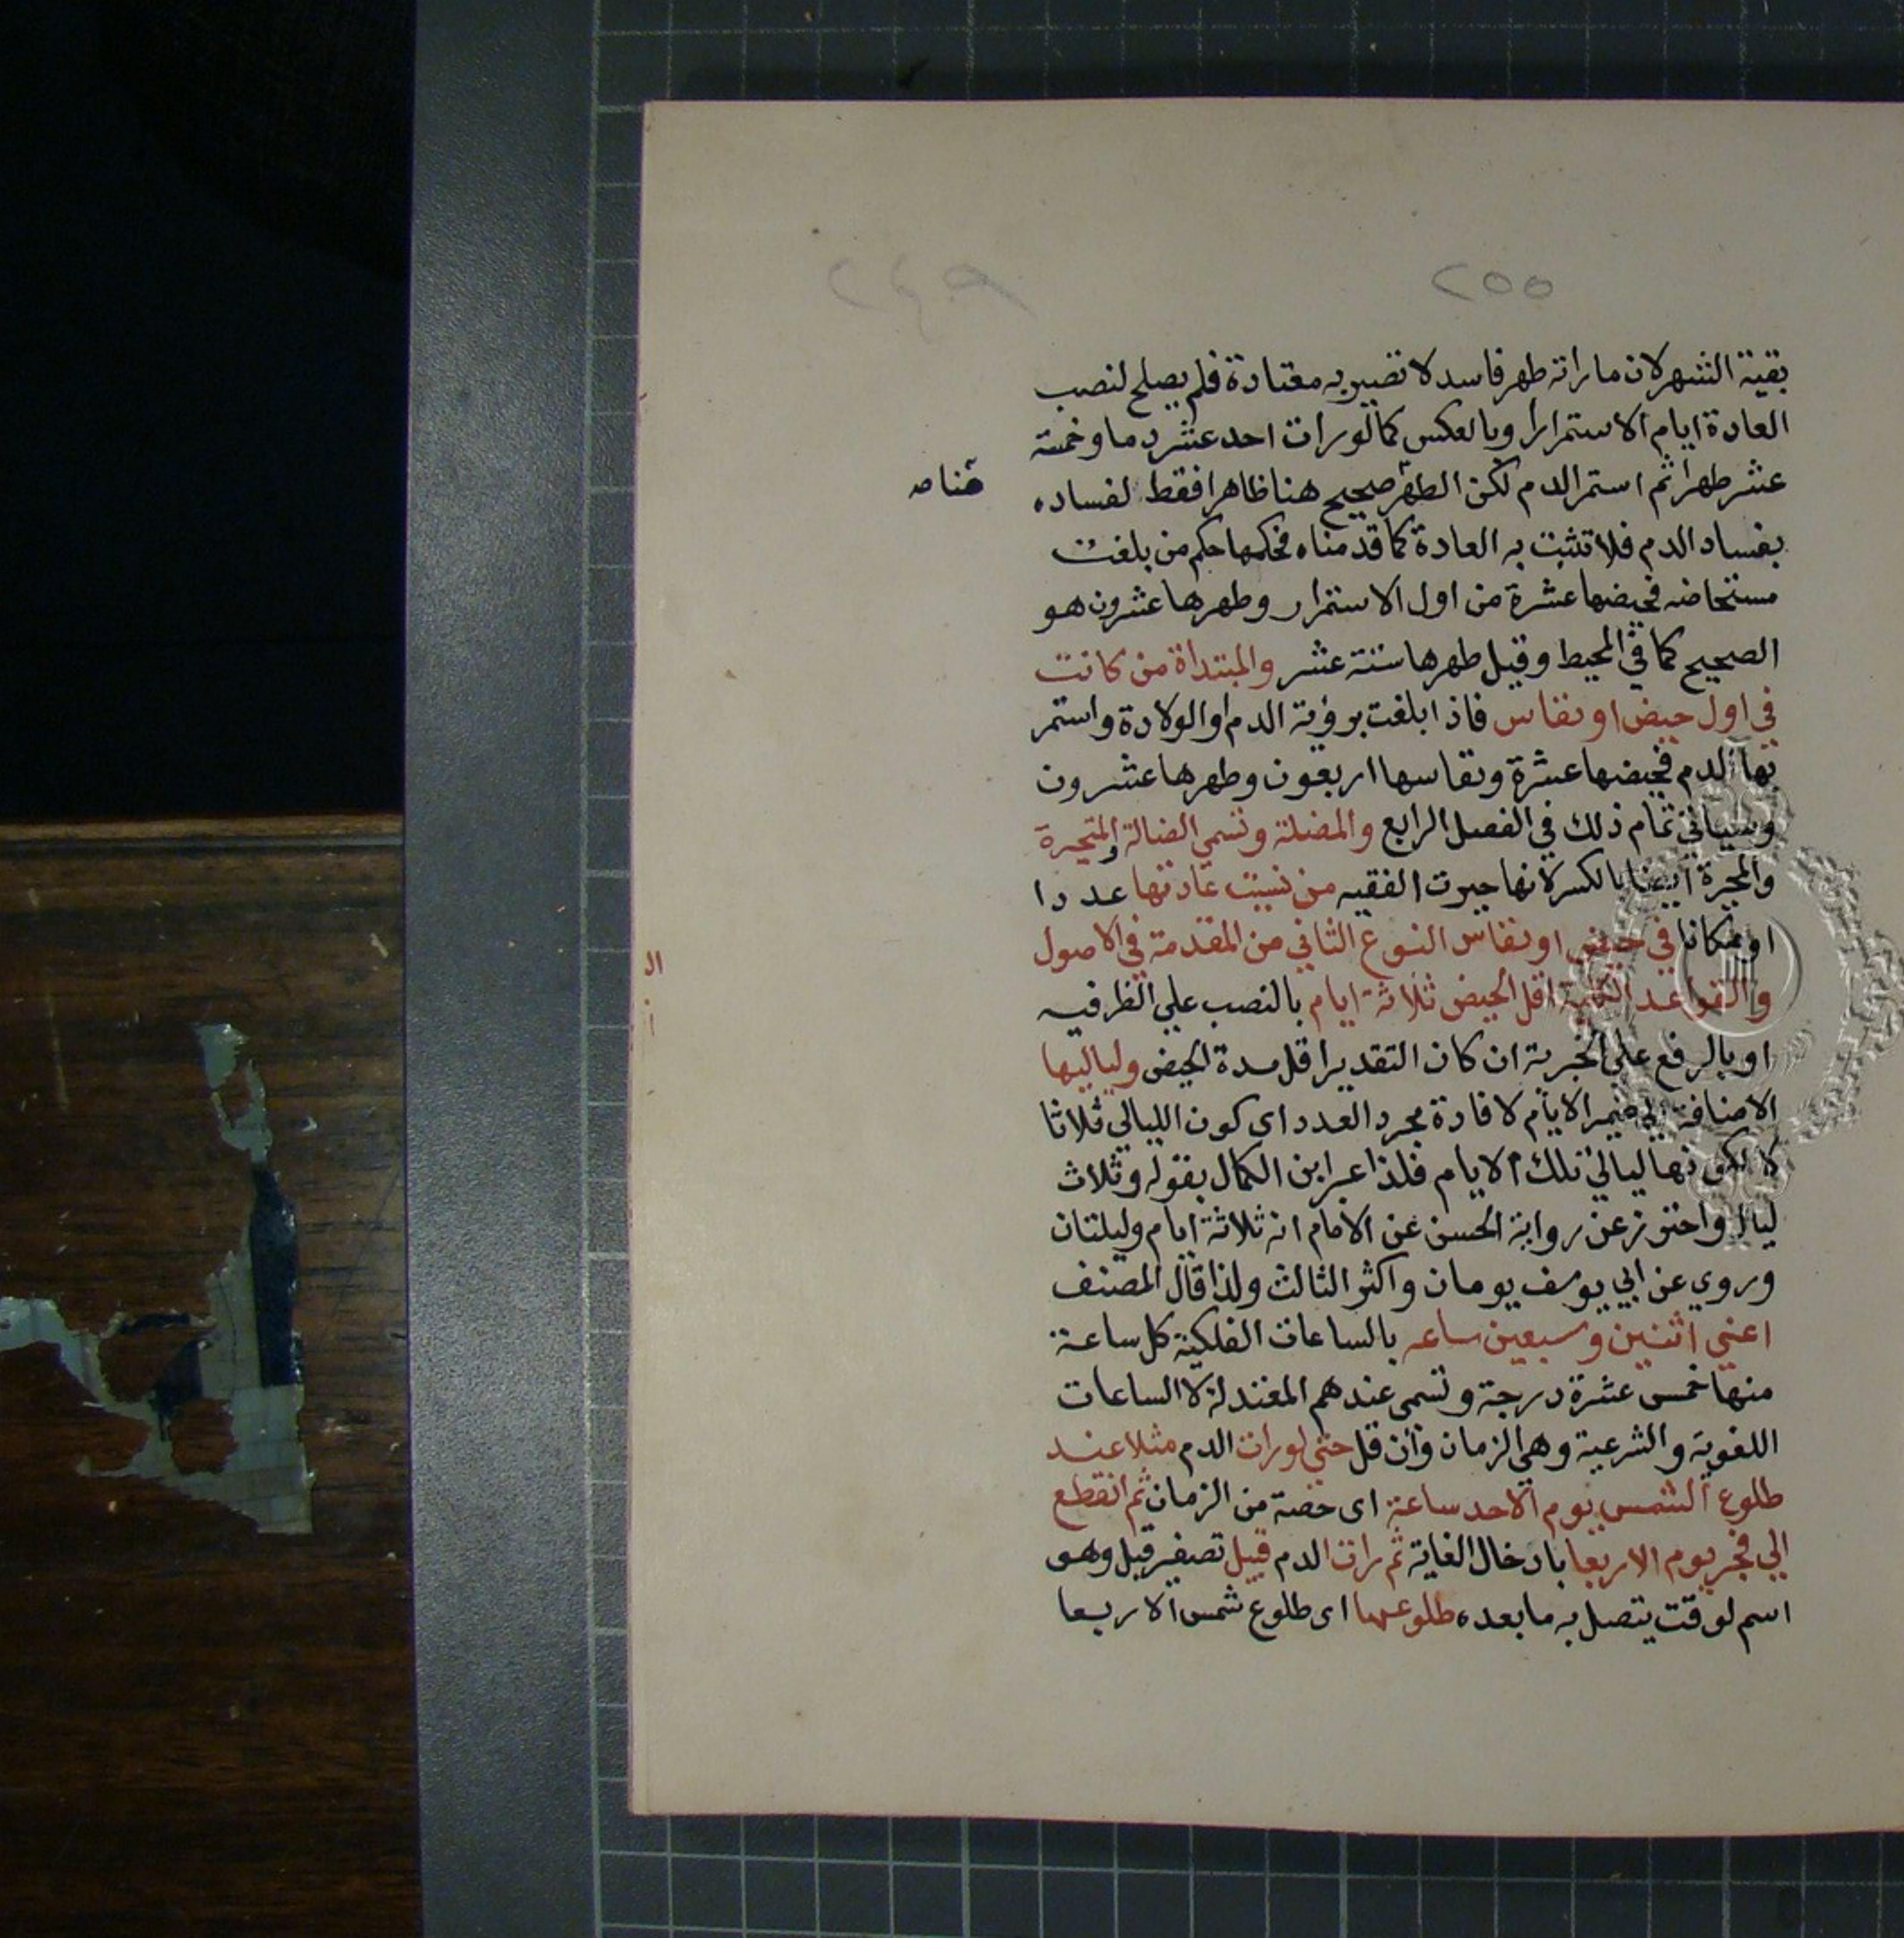 ٢٥٥
٢٤٩
بقية الشهر لان ما راته طهر فاسد لا تصير به معتادة فلم يصلح لنصب
العادة ايام الاستمرار وبالعكس كما لو رات احد عشر دما وخمسة
عشر طهرا ثم استمر الدم لكن الطهر صحيح هنا ظاهرا فقط لفساده
هنا صه
بفساد الدم فلا تثبت به العادة كما قدمناه فحكمها حكم من بلغت
مستحاضه فحيضها عشرة من اول الاستمرار وطهرها عشرون هو
الصحيح كما في المحيط وقيل طهرها ستة عشر والمبتداة من كانت
في اول حيض او نفاس فاذا بلغت برؤية الدم او الولادة واستمر
بها الدم فحيضها عشرة ونفاسها اربعون وطهرها عشرون
وسياتي تمام ذلك في الفصل الرابع والمضلة وتسمي الضالة والمتحيرة
والمحيرة ايضا بالكسر لانها حيرت الفقيه من نسيت عادتها عددا
او مكانا في حيض او نفاس النوع الثاني من المقدمة في الاصول
والقواعد الكلية اقل الحيض ثلاثة ايام بالنصب علي الظرفيه
او بالرفع علي الخبرية ان كان التقدير اقل مدة الحيض ولياليها
الاضافة الي ضمير الايام لافادة مجرد العدد اى كون الليالي ثلاثا
لا لكونها ليالي تلك الايام فلذا عبر ابن الكمال بقوله وثلاث
ليال واحترز عن رواية الحسن عن الامام انه ثلاثة ايام وليلتان
وروي عن ابي يوسف يومان واكثر الثالث ولذا قال المصنف
اعني اثنين وسبعين ساعه بالساعات الفلكية كل ساعة
منها خمس عشرة درجة وتسمى عندهم المعتدلة لا الساعات
اللغوية والشرعية وهي الزمان وان قل حتي لو رات الدم مثلا عند
طلوع الشمس يوم الاحد ساعة اى حصة من الزمان ثم انقطع
الي فجر يوم الاربعا بادخال الغاية ثم رات الدم قبيل تصغير قبل وهو
اسم لوقت يتصل به ما بعده طلوعها اى طلوع شمس الاربعا